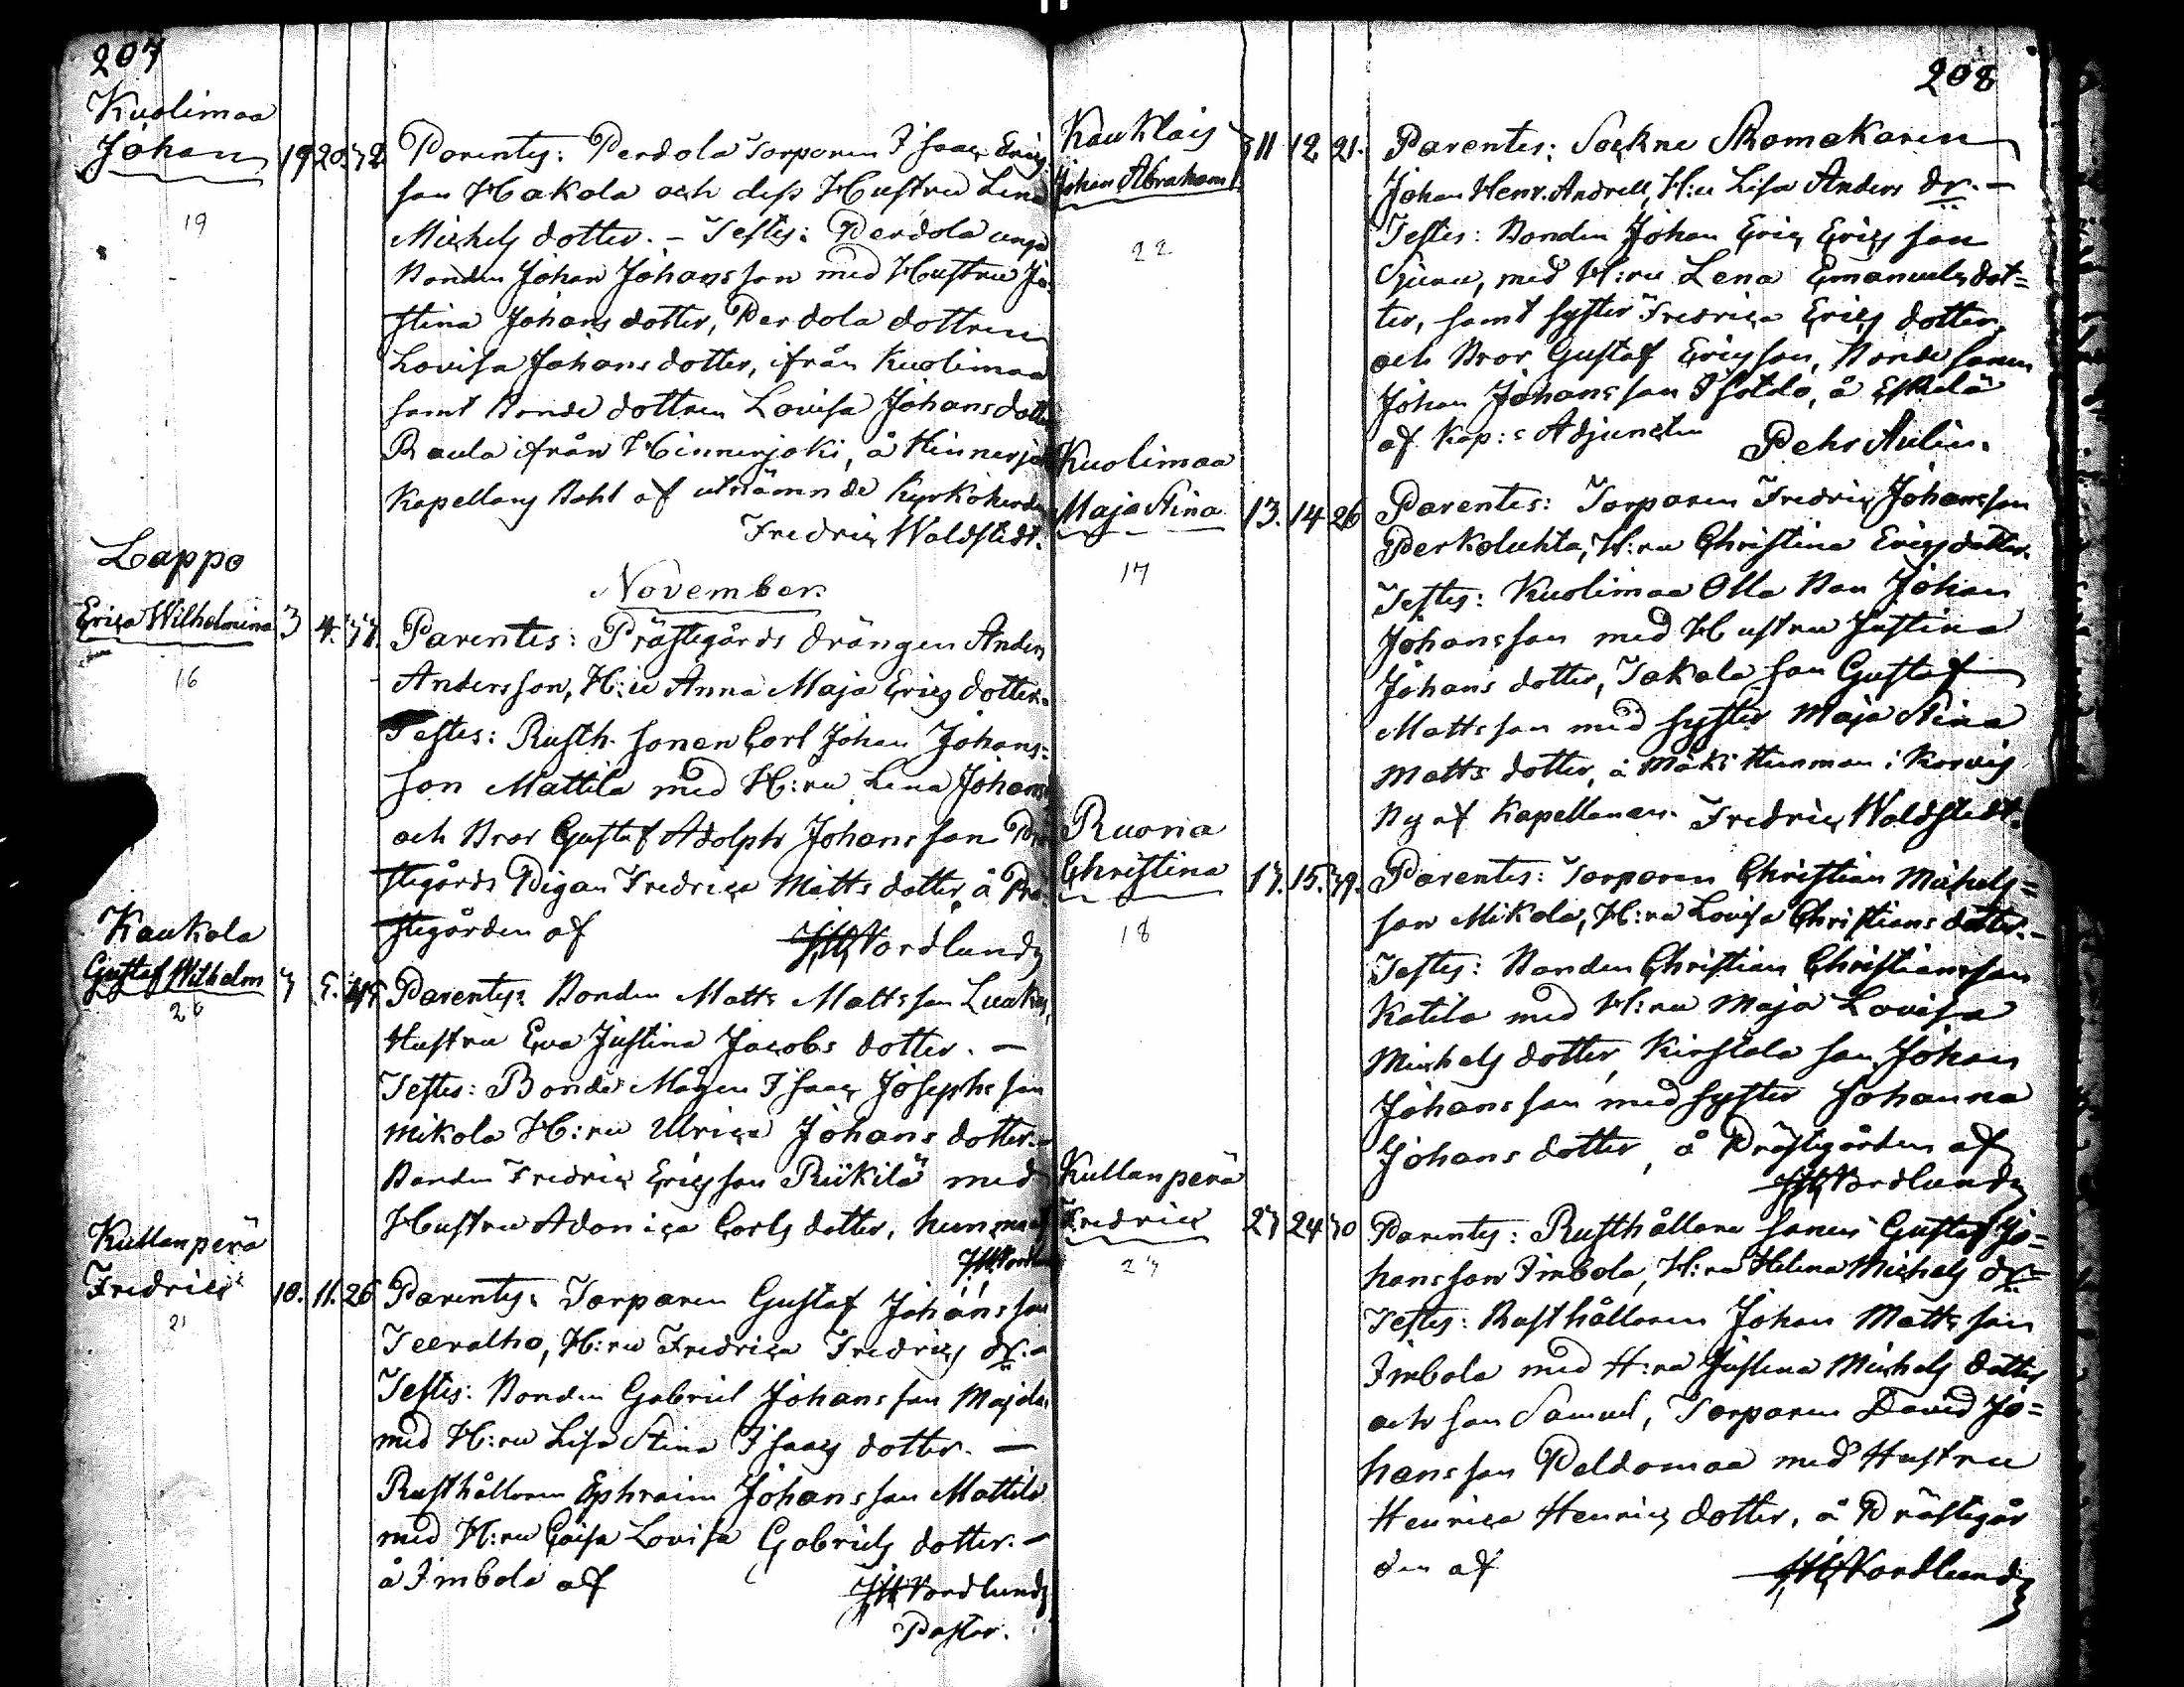 207
Kuolimaa
Johan 19 20 32 Parentes: Perdola Torparen Isaac Erics
19
son Hakola och dess Hustru Lena
Michels dotter. – Testes: Perdola unga
Bonden Johan Johansson med Hustru Ju-
stina Johans dotter, Perdola dottren
Lovisa Johans dotter, ifrån Kuolimaa
samt Bonde dottren Lovisa Johansdotter
Raula ifrån Hinnerjoki, å Hinnerjoki
Kapellans Bohl af utnämnde Kyrkoherden
Fredric Waldstedt.
November.
Lappo
Erica Wilhelmina 3 4. Parentes: Prästegårds drängen Anders
16
Andersson, H:u Anna Maja Erics dotter.
Testes: Rusth. sonen Carl Johan Johans=
son Mattila med H:ru Lena Johans
och Bror Gustaf Adolph Johansson Prä
stegårds Pigan Fredrica Matts dotter, å Prä-
stegården af JH Nordlund
Kaukola
Gustaf Wilhelm 5. Parentes: Bonden Matts Mattsson
26
Hustru Eva Justina Jacobs dotter. –
Testes: Bonde Mågen Isaac Josephsson
Mikola H:ru Ulrica Johans dotter. –
Bonden Fredric Ericsson Riikilä med
Hustru Adonica Carls dotter, hemma af
JH Nordlund
Kullanperä
Fredrica 10. 11. 26 Parentes: Torparen Gustaf Johansson
21
Teeralho, H:ru Fredrica Fredrics dr. –
Testes: Bonden Gabriel Johansson Majala
med H:ru Lisa Stina Isaacs dotter. –
Rusthållaren Ephraim Johansson Mattila
med H:ru Caisa Lovisa Gabriels dotter. –
å Imbola af JH Nordlund
Pastor.
208
Kauklais
Johan Abraham 11 12 21. Parentes: Sockne Skomakaren
22
Johan Henr. Andrell, H:u Lisa Anders dr. –
Testes: Bonden Johan Eric Ericsson
med H:ru Lena Emanuels dot=
ter, samt syster Fredrica Erics dotter,
och Bror Gustaf Ericsson, Bonde sonen
Johan Johansson Isotalo, å Eskilä
af Kap:s Adjuncten Pehr Aulin.
Kuolimaa
Maja Stina 13. 14 26 Parentes: Torparen Fredric Johansson
17
Perkoluhta, H:ru Christina Erics dotter.
Testes: Kuolimaa Olla Bon Johan
Johansson med Hustru Justina
Johans dotter, Takala son Gustaf
Mattsson med syster Maja Stina
Matts dotter, å Mäki Hemman i Korvis
By af Kapellanen Fredric Waldstedt.
Ruona
Christina 17. 15. 39. Parentes: Torparen Christian Michels=
18
son Mikola, H:ru Lovisa Christians dotter. –
Testes: Bonden Christian Christiansson
Katila med H:ru Maja Lovisa
Michels dotter, Kirstala son Johan
Johansson med syster Johanna
Johans dotter, å Prästegården af
JH Nordlund
Kullanperä
Fredric 23 24 30 Parentes: Rusthållare sonen Gustaf Jo=
27
hansson Imbola, H:ru Helena Michels dr. –
Testes: Rusthållaren Johan Mattsson
Imbola med H:ru Justina Michels dotter
och son Samuel, Torparen David Jo=
hansson Peldomaa med Hustru
Henrica Henrics dotter, å Prästegår
den af JH Nordlund